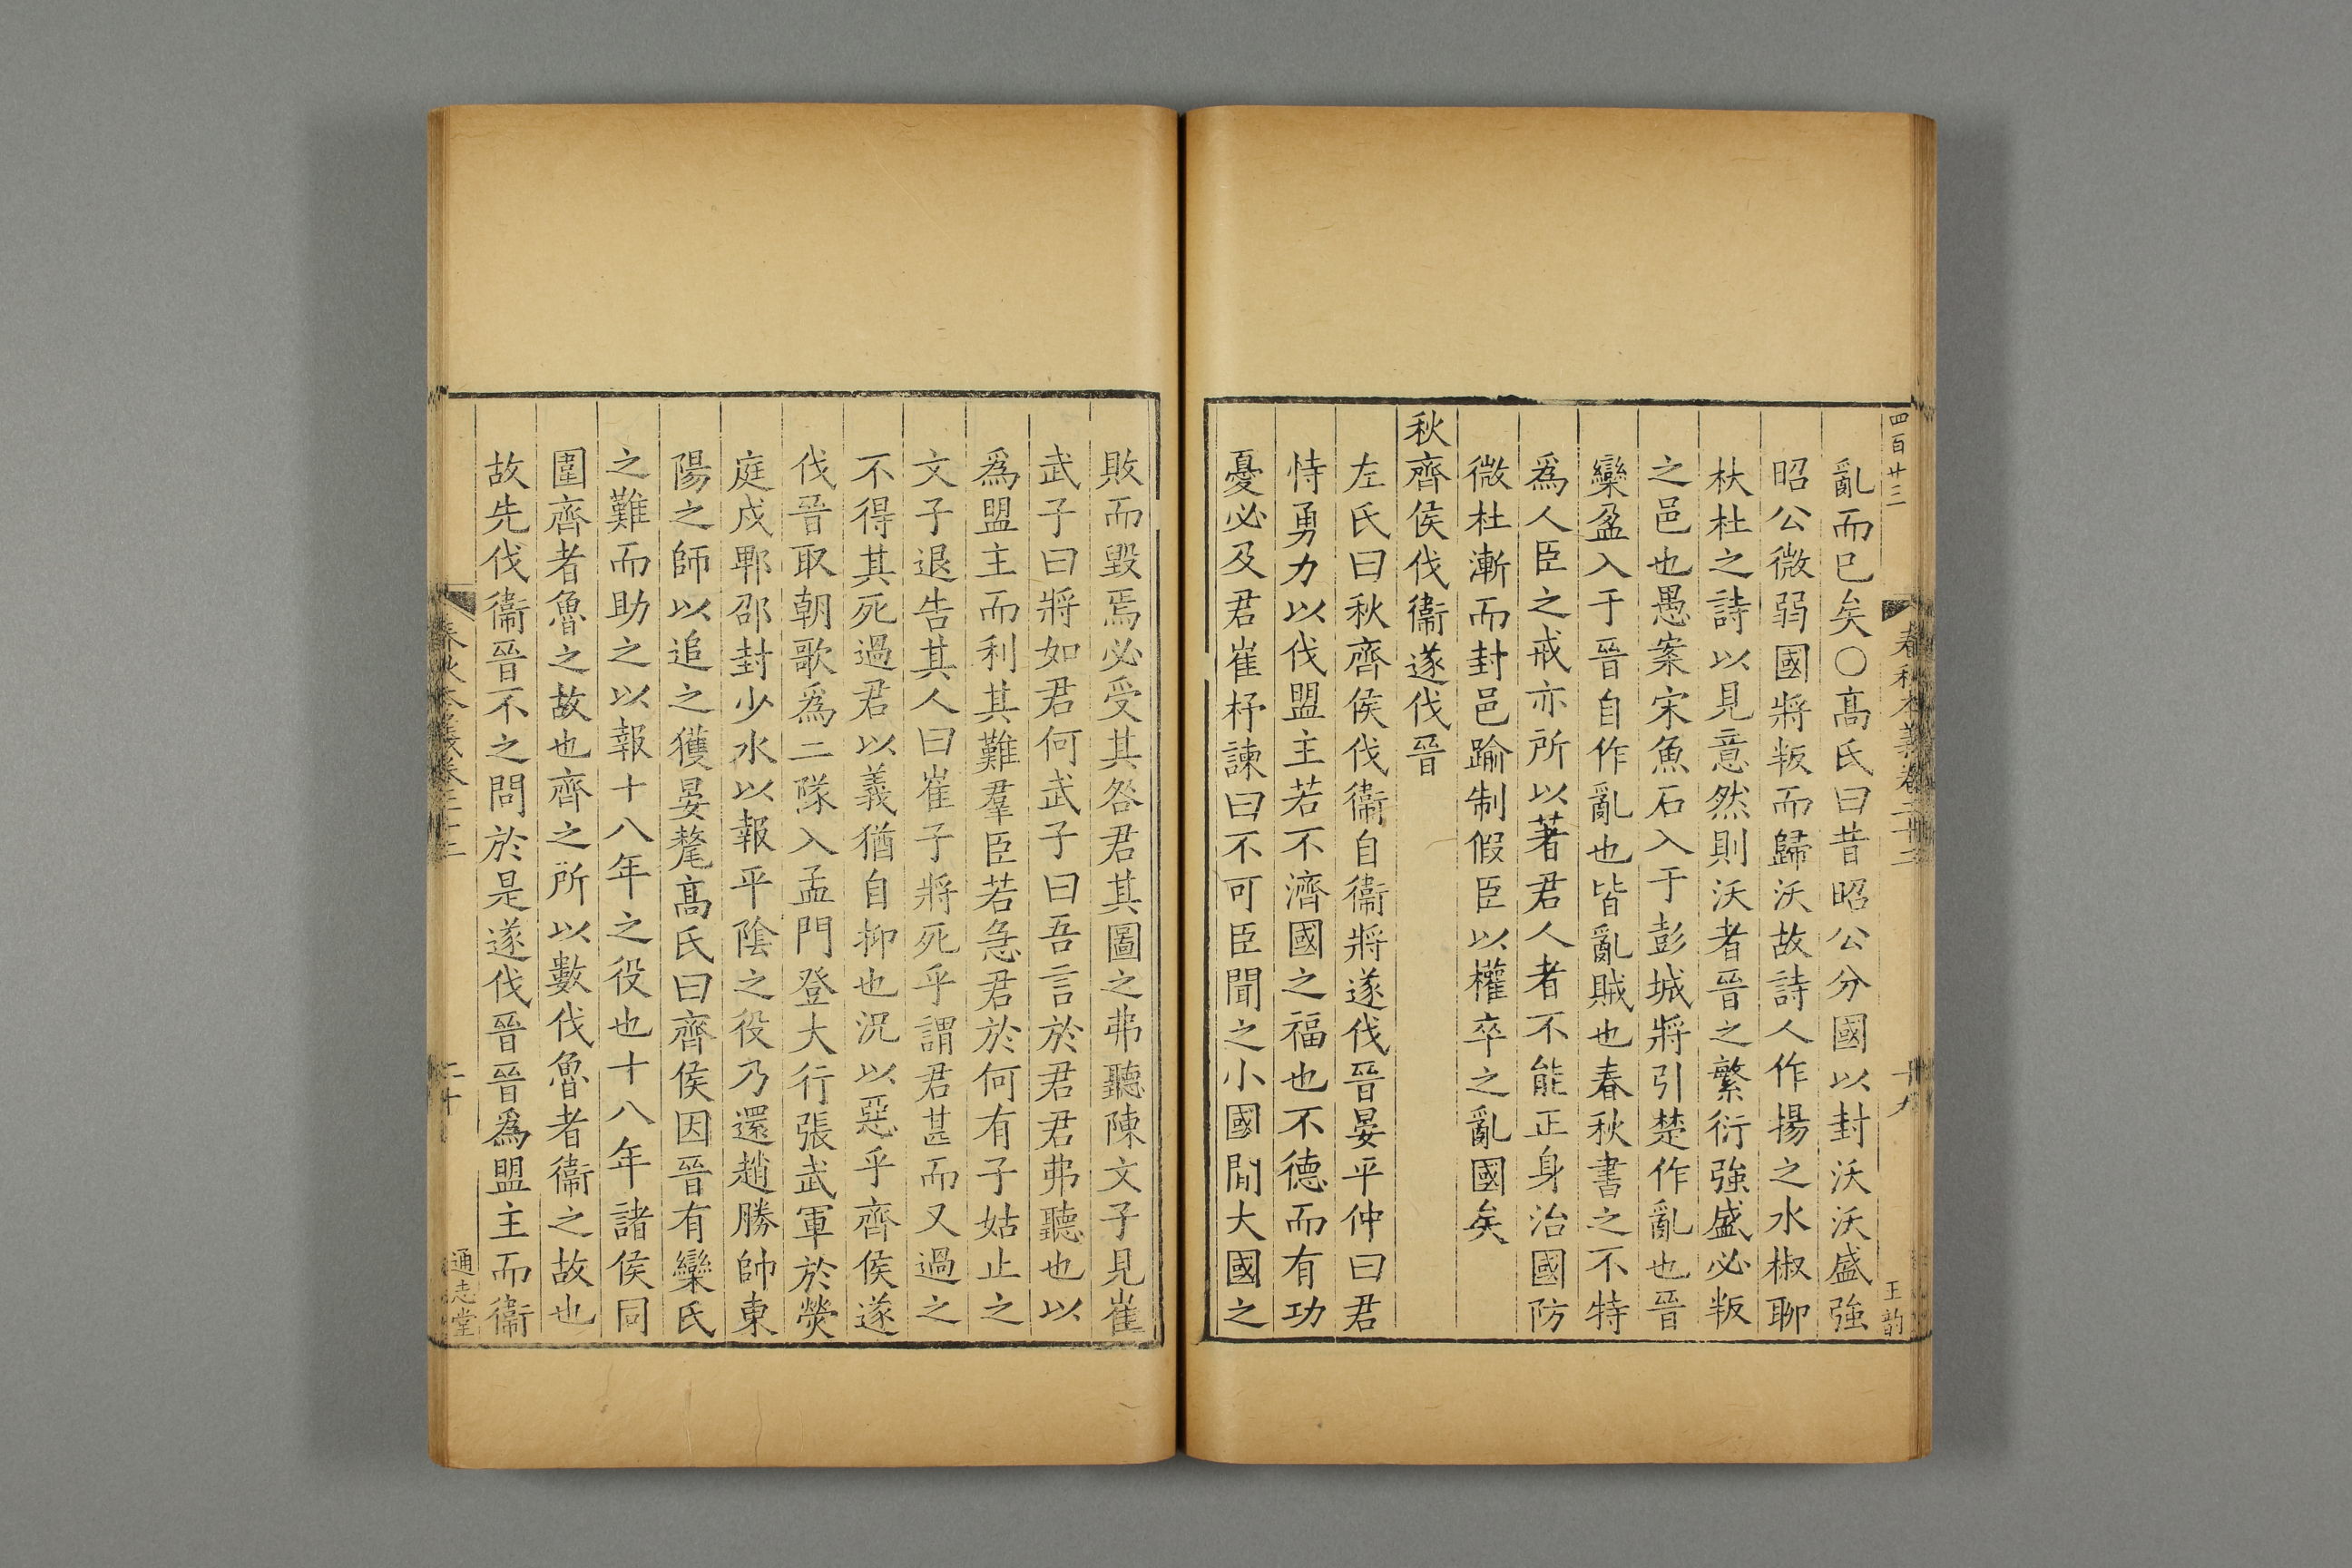 四百廿三
春秋本義卷二十二
十九
王韵
亂而已矣〇髙氏曰昔昭公分國以封沃沃盛強
昭公微弱國將叛而歸沃故詩人作揚之水椒聊
杕杜之詩以見意然則沃者晉之繁衍強盛必叛
之邑也愚案宋魚石入于彭城將引楚作亂也晉
欒盈入于晉自作亂也皆亂賊也春秋書之不特
爲人臣之戒亦所以著君人者不能正身治國防
微杜漸而封邑踰制假臣以權卒之亂國矣
秋齊侯伐衞遂伐晉
左氏曰秋齊侯伐衞自衞將遂伐晉晏平仲曰君
恃勇力以伐盟主若不濟國之福也不德而有功
憂必及君崔杼諫曰不可臣聞之小國閒大國之
敗而毀焉必受其咎君其圖之弗聽陳文子見崔
武子曰將如君何武子曰吾言於君君弗聽也以
爲盟主而利其難羣臣若急君於何有子姑止之
文子退告其人曰崔子將死乎謂君甚而又過之
不得其死過君以義猶自抑也況以惡乎齊侯遂
伐晉取朝歌爲二隊入孟門登大行張武軍於熒
庭戍郫邵封少水以報平陰之役乃還趙勝帥東
陽之師以追之獲晏氂髙氏曰齊侯因晉有欒氏
之難而助之以報十八年之役也十八年諸侯同
圍齊者魯之故也齊之所以數伐魯者衞之故也
故先伐衞晉不之問於是遂伐晉晉爲盟主而衞
春秋本義卷二十二
二十
通志堂